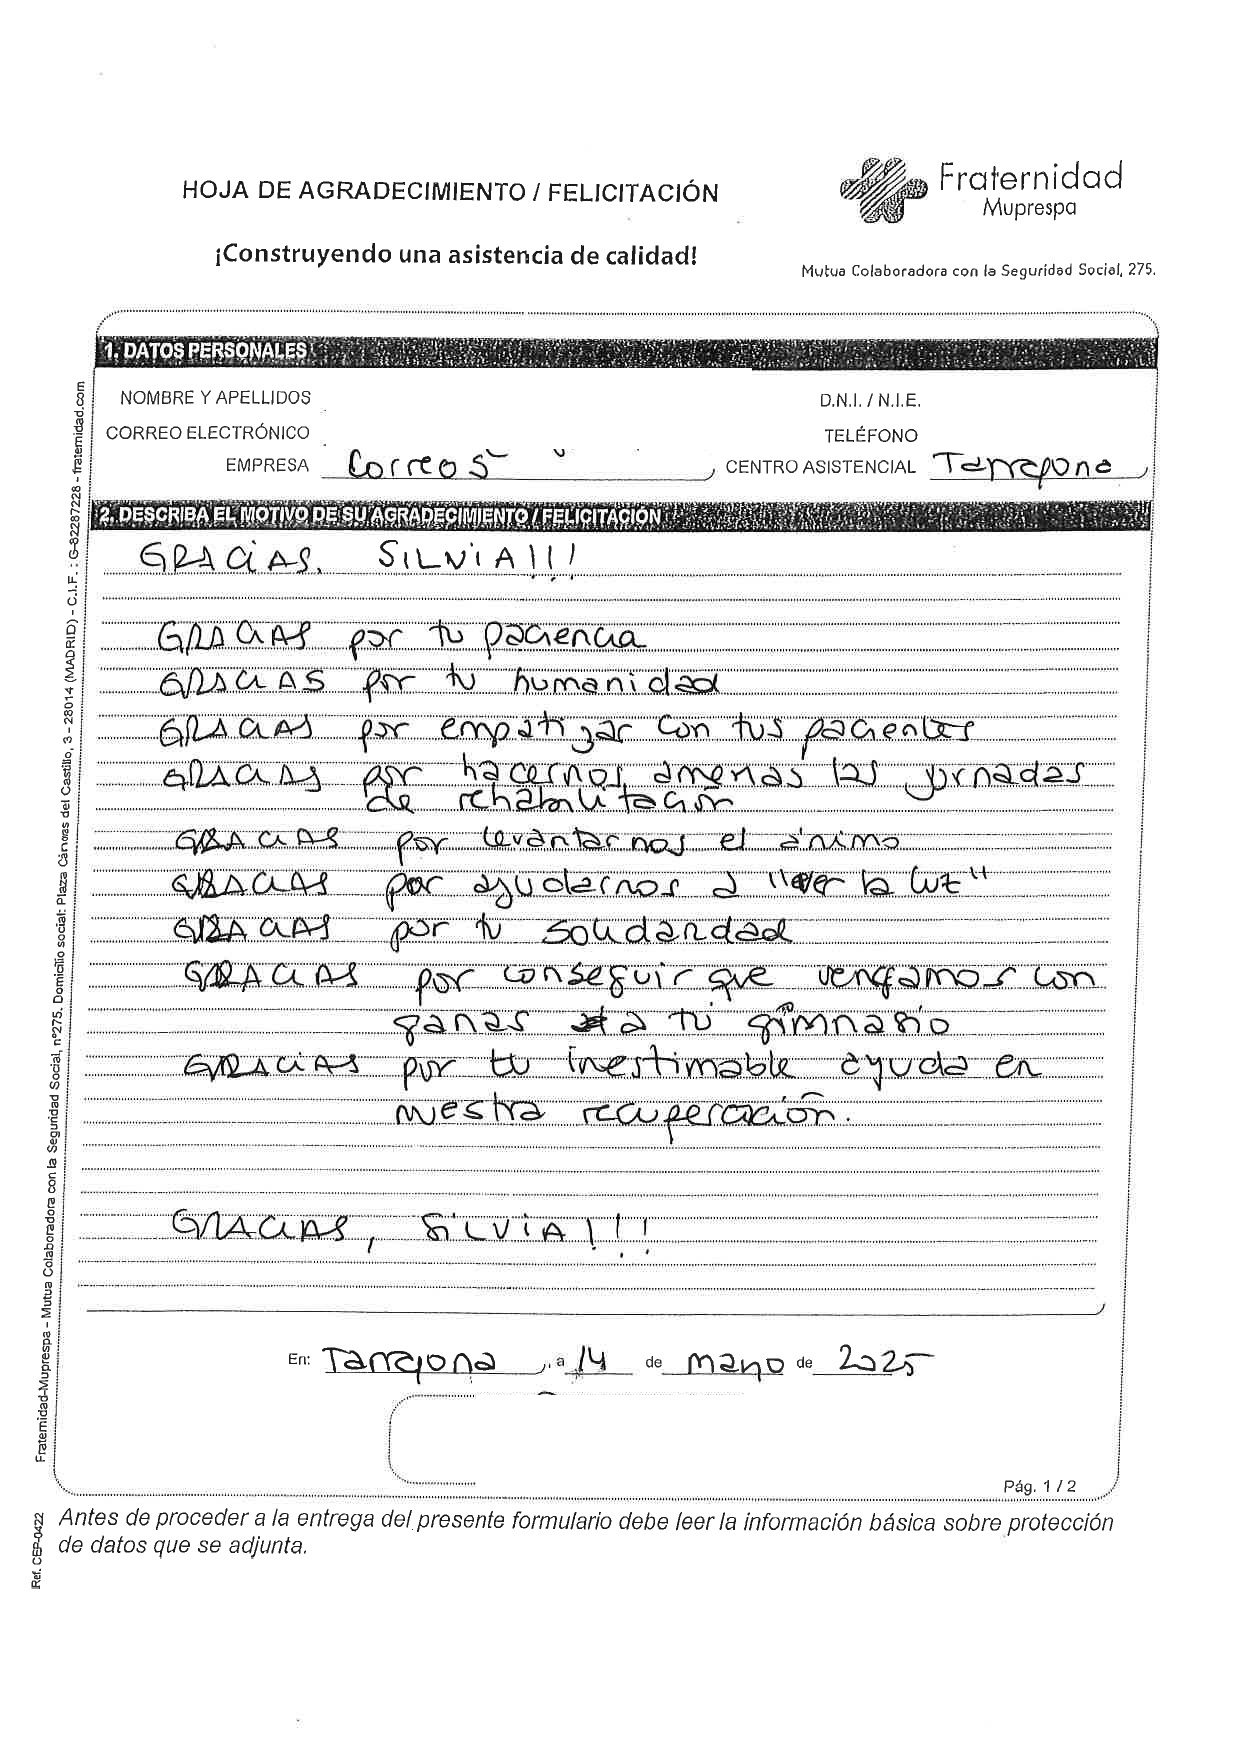 HOJA DE AGRADECIMIENTO / FELICITACIÓN
Fraternidad
Muprespa
¡Construyendo una asistencia de calidad!
Mutua Colaboradora con la Seguridad Social, 275.
1. DATOS PERSONALES
NOMBRE Y APELLIDOS
D.N.I. / N.I.E.
CORREO ELECTRÓNICO
TELÉFONO
EMPRESA Correos
CENTRO ASISTENCIAL Tarragona
2. DESCRIBA EL MOTIVO DE SU AGRADECIMIENTO / FELICITACIÓN
GRACIAS, SILVIA!!!
GRACIAS por tu paciencia
GRACIAS por tu humanidad
GRACIAS por empatizar con tus pacientes
GRACIAS por hacernos amenas las jornadas
de rehabilitación
GRACIAS por levantarnos el ánimo
GRACIAS por ayudarnos a "ver la luz"
GRACIAS por tu solidaridad
GRACIAS por conseguir que vengamos con
ganas a tu gimnasio
GRACIAS por tu inestimable ayuda en
nuestra recuperación.
GRACIAS, SILVIA!!!
En: Tarragona, a 14 de mayo de 2025
Pág. 1 / 2
Antes de proceder a la entrega del presente formulario debe leer la información básica sobre protección
de datos que se adjunta.
Fraternidad-Muprespa - Mutua Colaboradora con la Seguridad Social, nº275. Domicilio social: Plaza Cánovas del Castillo, 3 - 28014 (MADRID) - C.I.F. : G-82287228 - fraternidad.com
Ref. CEP-0422